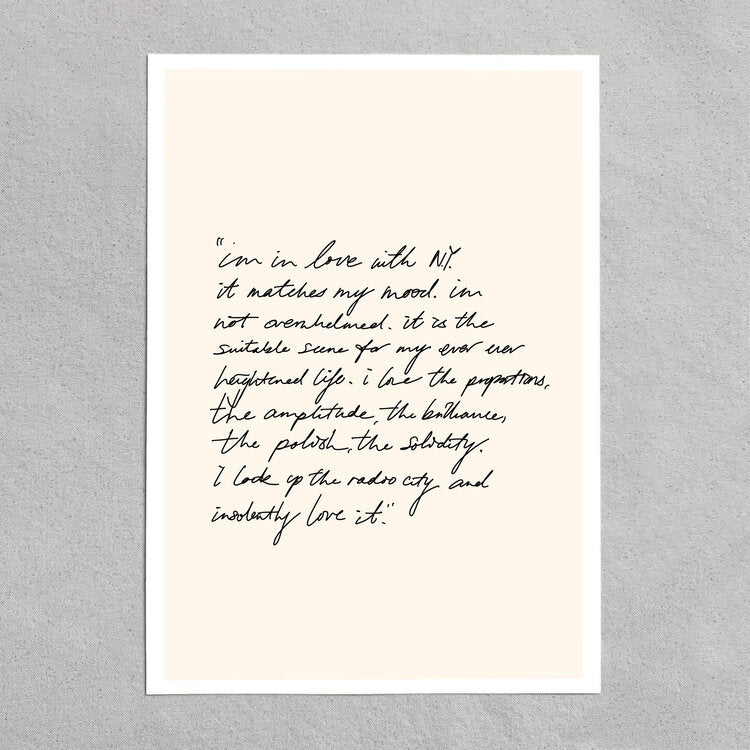 "im in love with N.Y.
it matches my mood. im
not overwhelmed. it is the
suitable scene for my ever ever
heightened life. i love the proportions,
the amplitude, the brilliance,
the polish, the solidity.
I look up the radio city and
insolently love it."